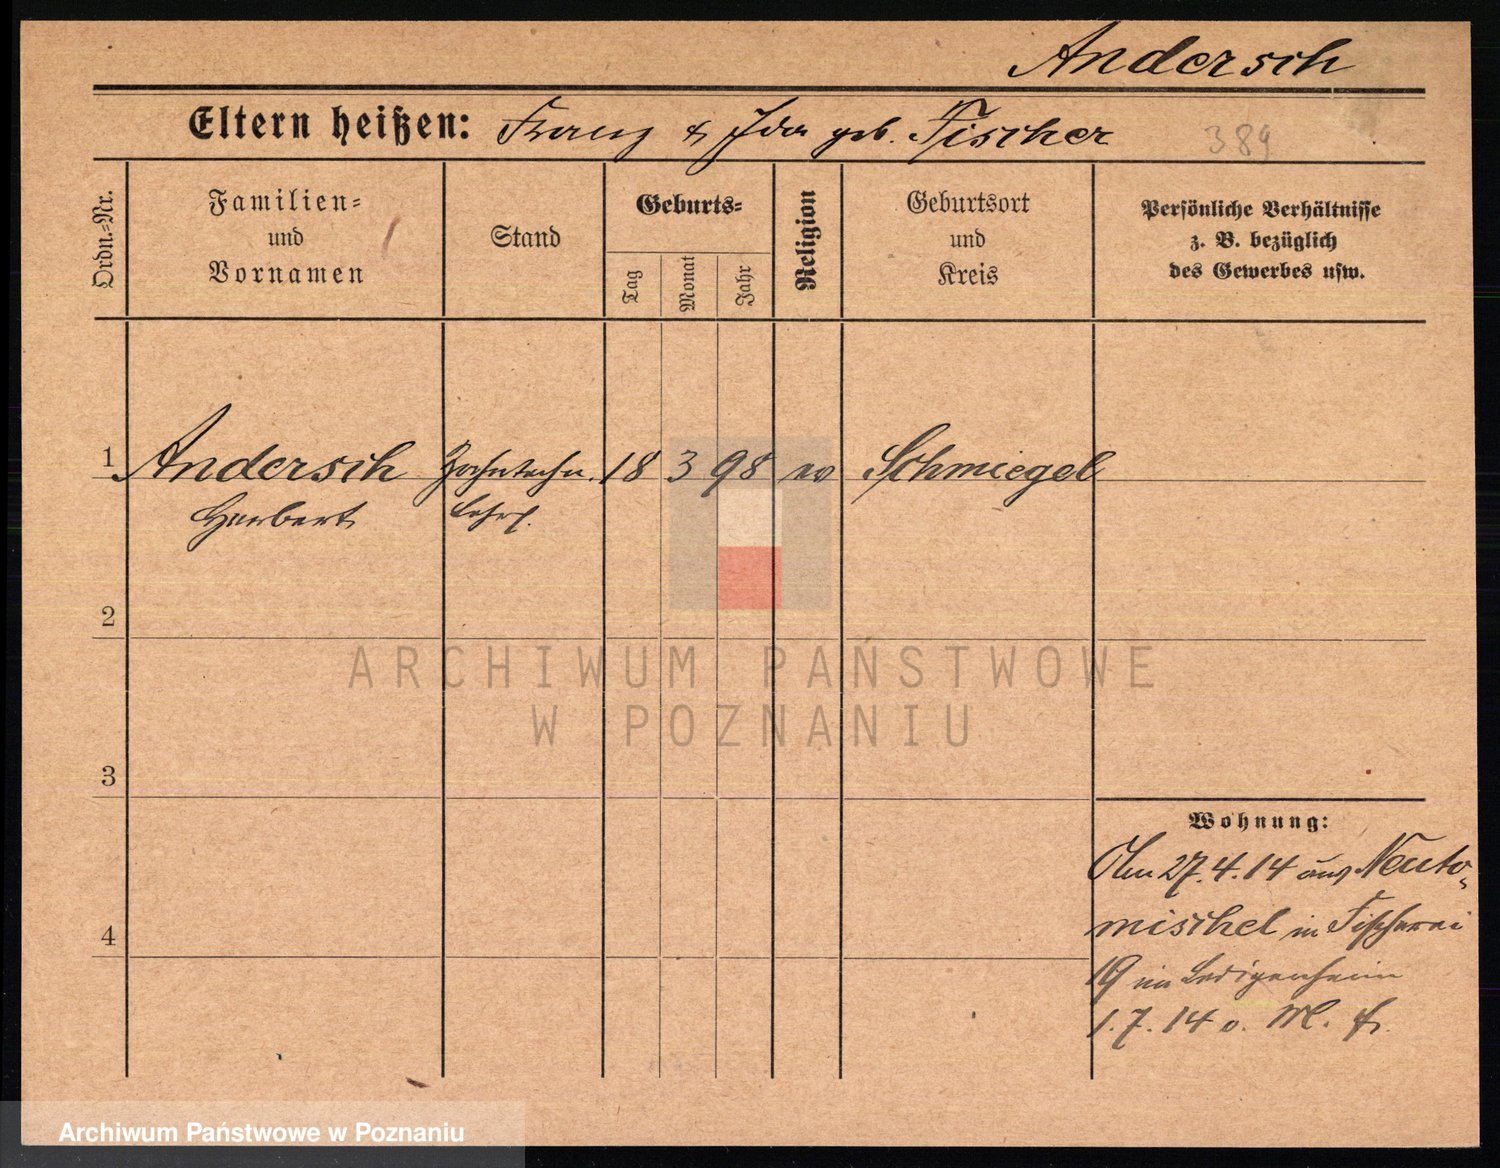 Andersch
Eltern heißen: Franz & Ida geb. Fischer
389
Ordn.-Nr.
Familien-
und
Vornamen
Stand
Geburts-
Tag
Monat
Jahr
Religion
Geburtsort
und
Kreis
Persönliche Verhältnisse
z. B. bezüglich
des Gewerbes usw.
1 Andersch Zahntechn. 18 3 98 ev Schmiegel
Herbert Lehrl.
2
3
4
Wohnung:
27.4.14 aus Neuto-
mischel in Fischerei
19 im Ledigenheim
1.7.14 o. M. f.
ARCHIWUM PAŃSTWOWE
W POZNANIU
Archiwum Państwowe w Poznaniu